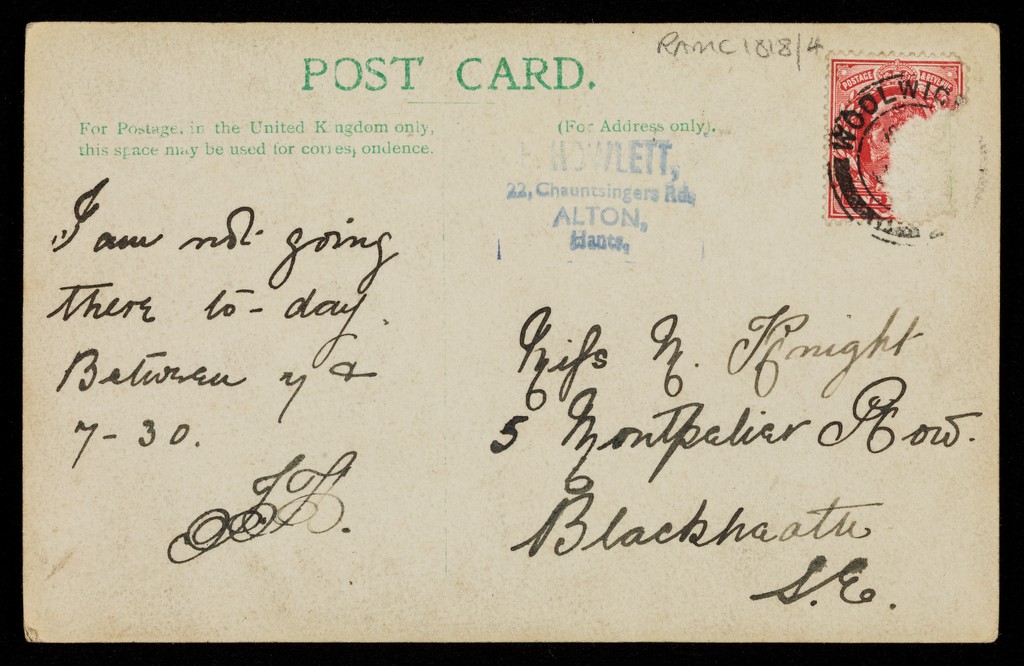 RAMC1818/4
POST CARD.
For Postage, in the United Kingdom only,
this space may be used for correspondence.
(For Address only).
HOWLETT,
22, Chauntsingers Rd,
ALTON,
Hants,
POSTAGE
WOOLWIC
I am not going
there to-day.
Between 7 &
7-30.
Miss M. Knight
5 Montpelier Row.
Blackheath
S.E.